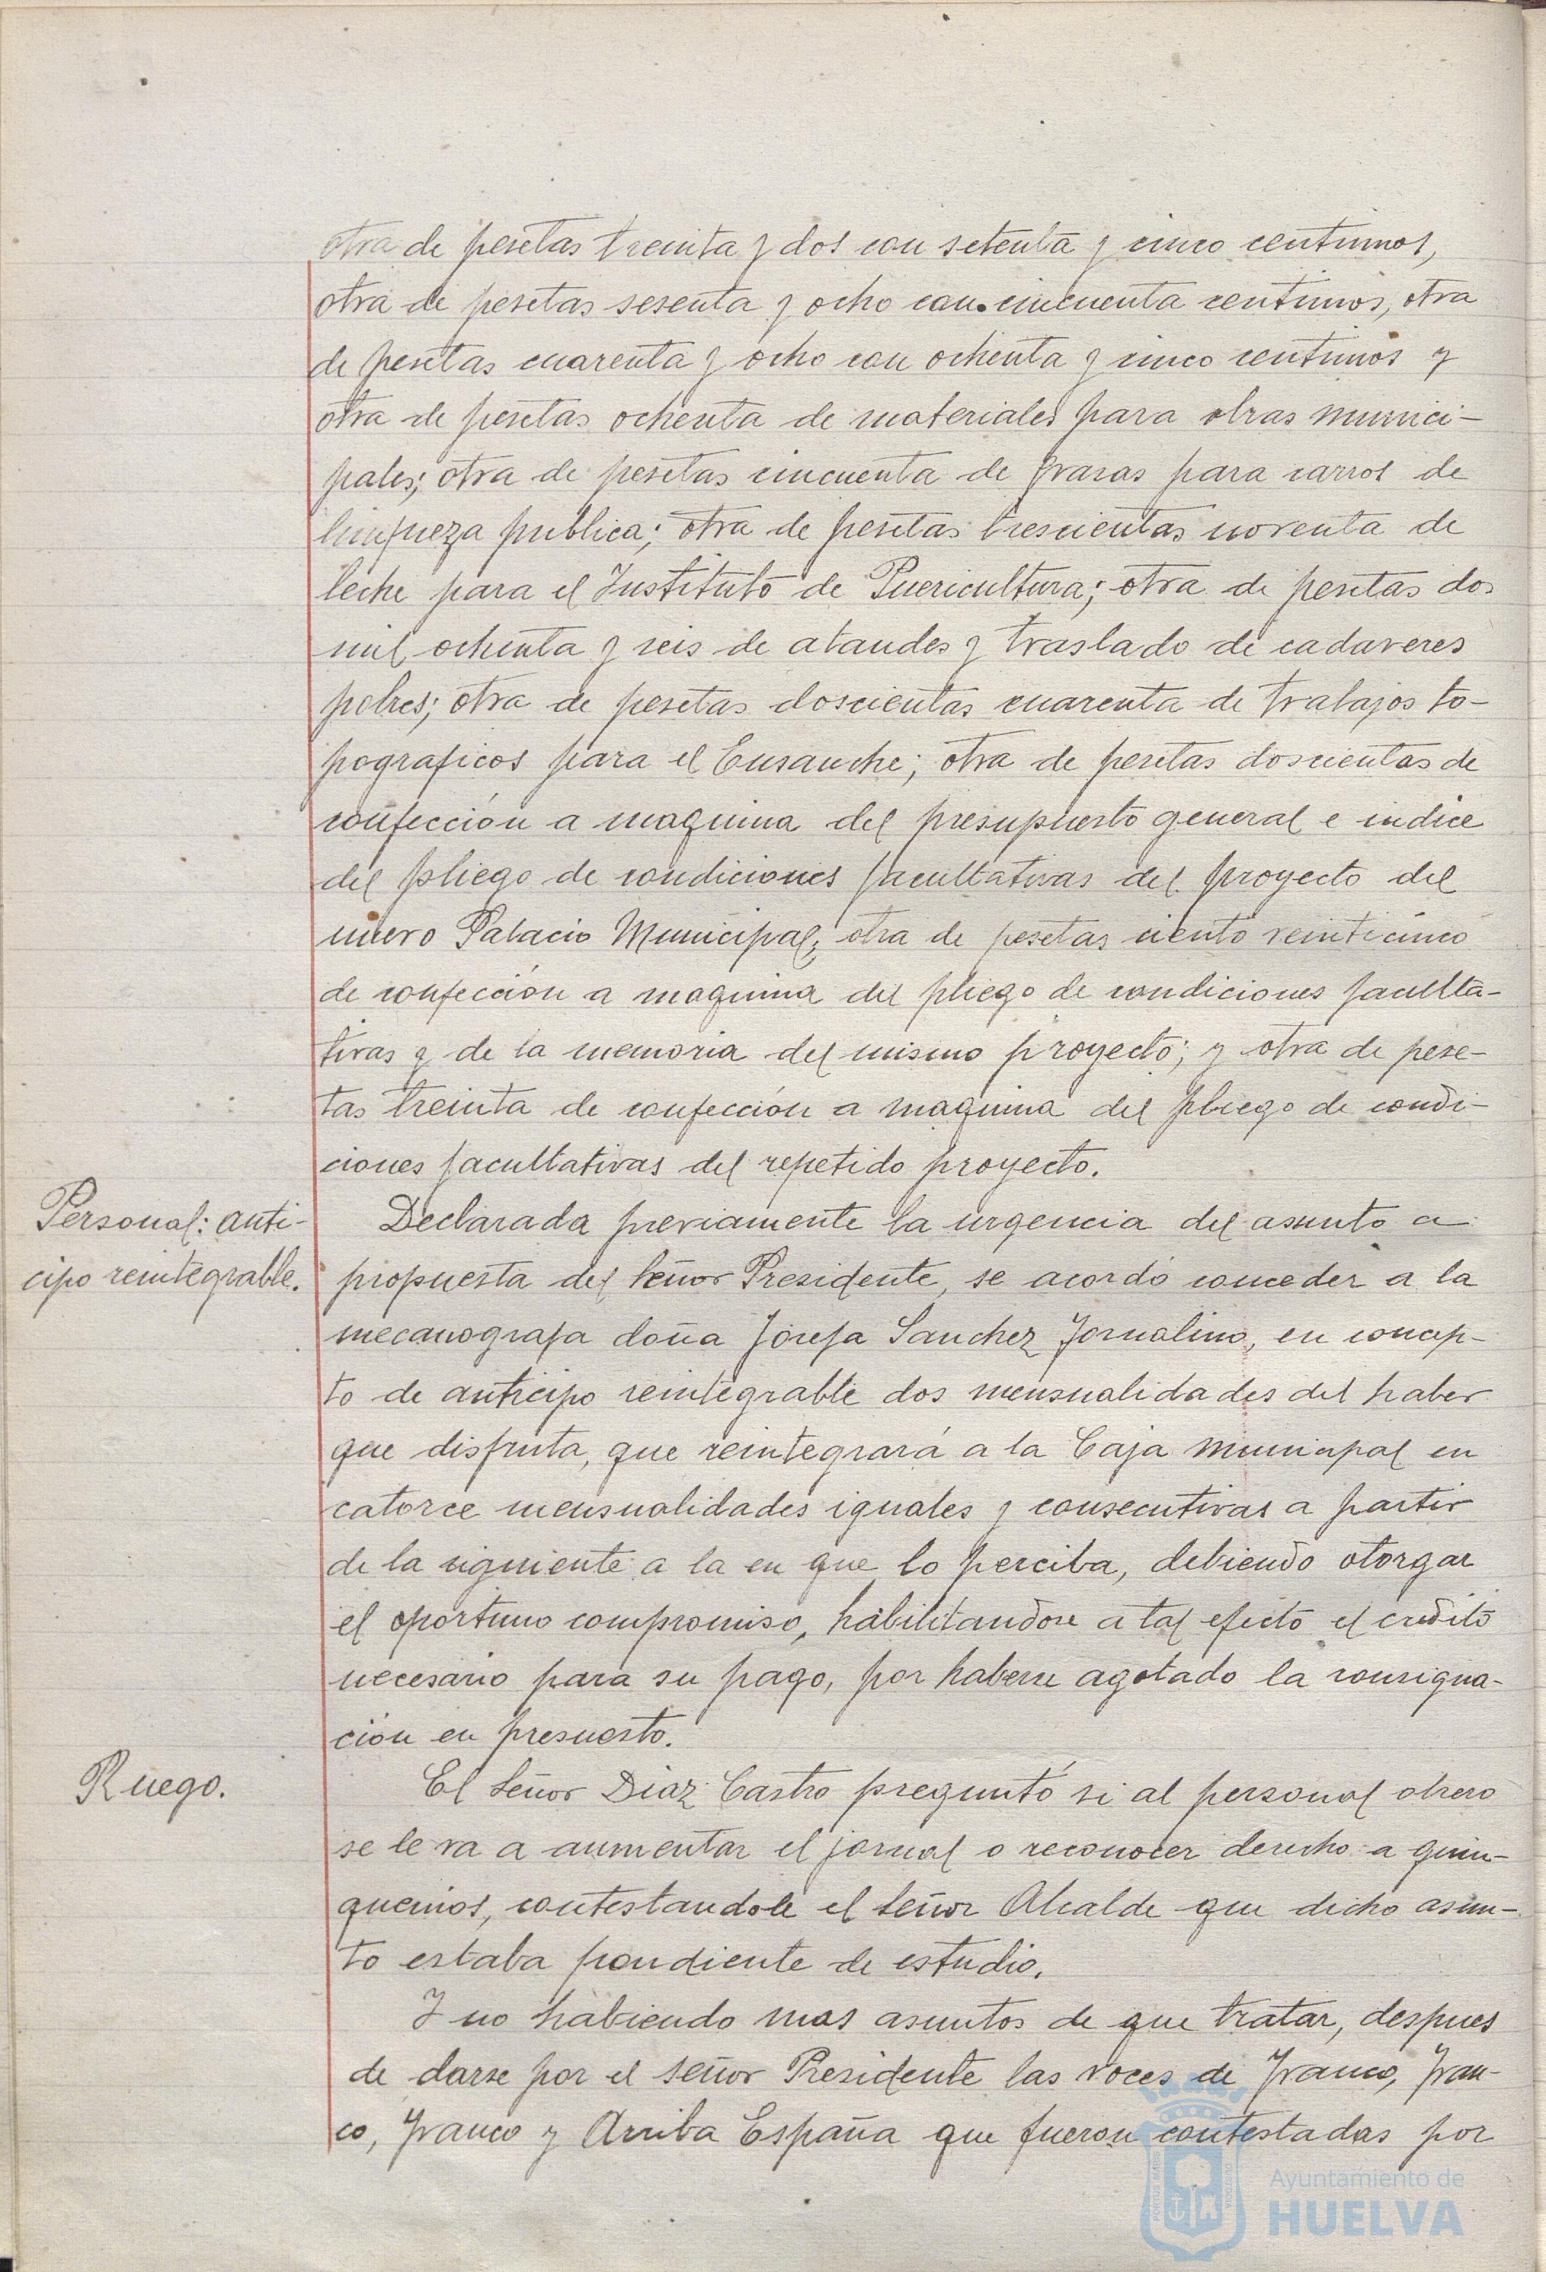 otra de pesetas treinta y dos con setenta y cinco centimos,
otra de pesetas sesenta y ocho con cincuenta centimos, otra
de pesetas cuarenta y ocho con ochenta y cinco centimos y
otra de pesetas ochenta de materiales para obras munici-
pales; otra de pesetas cincuenta de grasas para carros de
limpieza publica; otra de pesetas trescientas noventa de
leche para el Instituto de Puericultura; otra de pesetas dos
mil ochenta y seis de ataudes y traslado de cadaveres
pobres; otra de pesetas doscientas cuarenta de trabajos to-
pograficos para el Ensanche; otra de pesetas doscientas de
confección a maquina del presupuesto general e indice
del pliego de condiciones facultativas del proyecto del
nuevo Palacio Municipal; otra de pesetas ciento veinticinco
de confección a maquina del pliego de condiciones faculta-
tivas y de la memoria del mismo proyecto; y otra de pese-
tas treinta de confección a maquina del pliego de condi-
ciones facultativas del repetido proyecto.
Personal: anti-
cipo reintegrable.
Declarada previamente la urgencia del asunto a
propuesta del Señor Presidente, se acordó conceder a la
mecanografa doña Josefa Sanchez Jornalino, en concep-
to de anticipo reintegrable dos mensualidades del haber
que disfruta, que reintegrará a la Caja Municipal en
catorce mensualidades iguales y consecutivas a partir
de la siguiente a la en que lo perciba, debiendo otorgar
el oportuno compromiso, habilitandose a tal efecto el credito
necesario para su pago, por haberse agotado la consigna-
ción en presuesto.
Ruego.
El Señor Diaz Castro preguntó si al personal obrero
se le va a aumentar el jornal o reconocer derecho a quin-
quenios, contestandole el Señor Alcalde que dicho asun-
to estaba pendiente de estudio.
Y no habiendo mas asuntos de que tratar, despues
de darse por el señor Presidente las voces de Franco, Fran-
co, Franco y Arriba España que fueron contestadas por
Ayuntamiento de
HUELVA